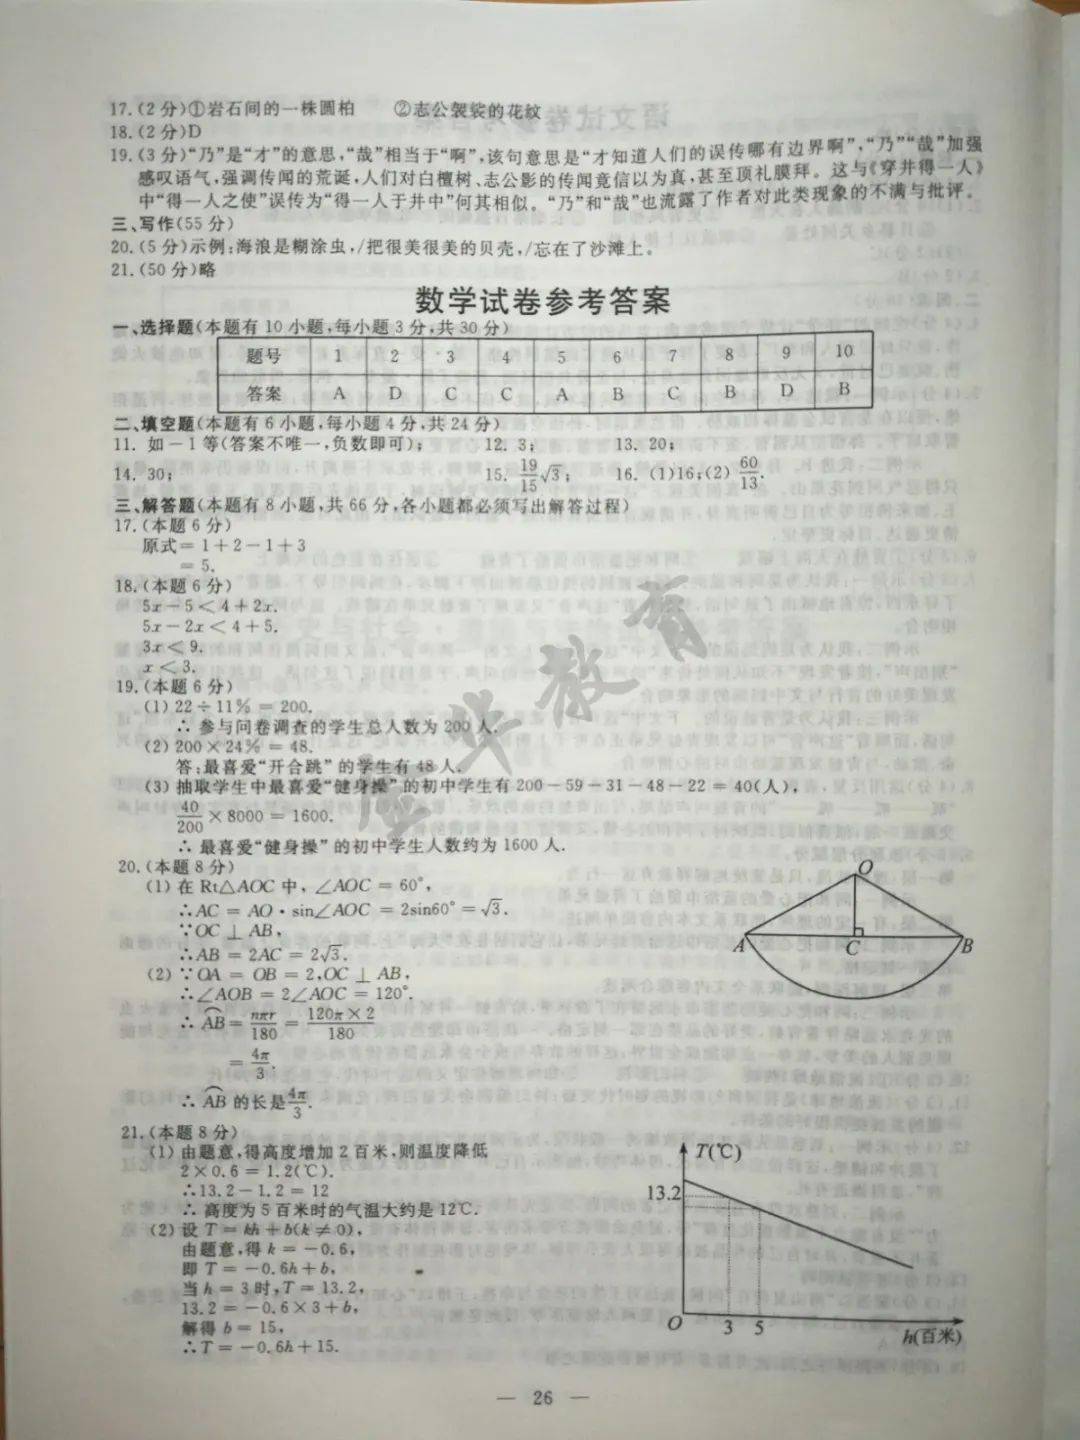 17.(2分)①岩石间的一株圆柏 ②志公袈裟的花纹
18.(2分)D
19.(3分)“乃”是“才”的意思,“哉”相当于“啊”,该句意思是“才知道人们的误传哪有边界啊”,“乃”“哉”加强
感叹语气,强调传闻的荒诞,人们对白檀树、志公影的传闻竟信以为真,甚至顶礼膜拜。这与《穿井得一人》
中“得一人之使”误传为“得一人于井中”何其相似。“乃”和“哉”也流露了作者对此类现象的不满与批评。
三、写作(55分)
20.(5分)示例:海浪是糊涂虫,/把很美很美的贝壳,/忘在了沙滩上。
21.(50分)略
数学试卷参考答案
一、选择题(本题有10小题,每小题3分,共30分)
题号 1 2 3 4 5 6 7 8 9 10
答案 A D C C A B C B D B
二、填空题(本题有6小题,每小题4分,共24分)
11. 如-1等(答案不唯一,负数即可); 12. 3; 13. 20;
14. 30; 15. 19/15√3; 16. (1)16;(2) 60/13.
三、解答题(本题有8小题,共66分,各小题都必须写出解答过程)
17.(本题6分)
原式=1+2-1+3
=5.
18.(本题6分)
5x-5<4+2x.
5x-2x<4+5.
3x<9.
x<3.
19.(本题6分)
(1) 22÷11%=200.
∴参与问卷调查的学生总人数为200人.
(2) 200×24%=48.
答:最喜爱“开合跳”的学生有48人.
(3) 抽取学生中最喜爱“健身操”的初中学生有200-59-31-48-22=40(人),
40/200×8000=1600.
∴最喜爱“健身操”的初中学生人数约为1600人.
20.(本题8分)
(1) 在Rt△AOC中,∠AOC=60°,
∴AC=AO·sin∠AOC=2sin60°=√3.
∵OC⊥AB,
∴AB=2AC=2√3.
(2) ∵OA=OB=2,OC⊥AB,
∴∠AOB=2∠AOC=120°.
∴⌒AB=nπr/180=120π×2/180
=4π/3.
∴⌒AB的长是4π/3.
O
A C B
21.(本题8分)
(1) 由题意,得高度增加2百米,则温度降低
2×0.6=1.2(℃).
∴13.2-1.2=12
∴高度为5百米时的气温大约是12℃.
(2) 设T=kh+b(k≠0),
由题意,得k=-0.6,
即T=-0.6h+b,
当h=3时,T=13.2,
13.2=-0.6×3+b,
解得b=15,
∴T=-0.6h+15.
T(℃)
13.2
O 3 5
h(百米)
— 26 —
金华教育